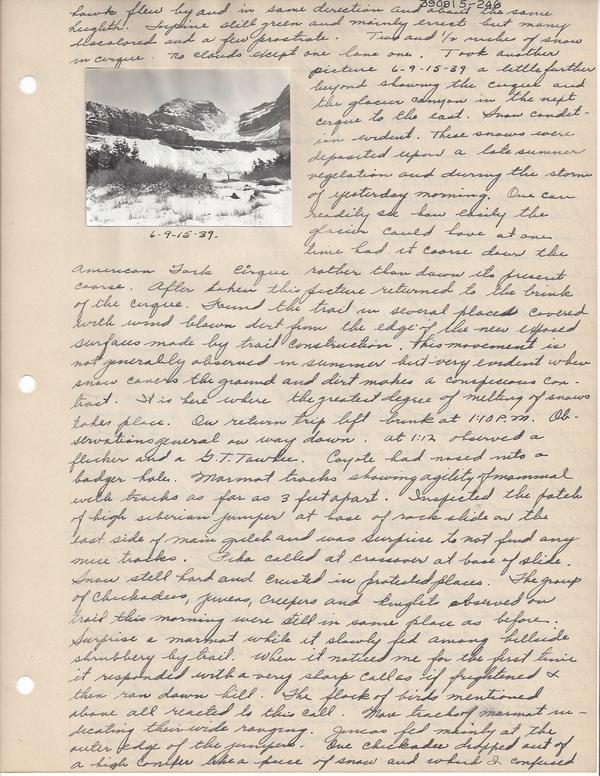 390915-246
hawk flew by and in same direction and about the same
heighth. Lupine still green and mainly errest but many
discolored and a few prostrate. Two and 1/2 inches of snow
in cirque. No clouds except one lone one. Took another
picture 6-9-15-39 a little further
beyond showing the cirque and
the glacier canyon in the next
cirque to the east. Snow condit-
ion evident. These snows were
deposited upon a late summer
vegetation and during the storm
of yesterday morning. One can
readily see how easily the
glacier could have at one
time had it coarse down the
6-9-15-39.
American Fork Cirque rather than down its present
coarse. After taken this picture returned to the brink
of the cirque. Found the trail in several places covered
with wind blown dirt from the edge of the new exposed
surfaces made by trail construction. This movement is
not generally observed in summer but very evident when
snow covers the ground and dirt makes a conspecious con-
trast. It is here where the greatest degree of melting of snows
takes place. On return trip left brink at 1:10 P.M. Ob-
servations general on way down. at 1:12 observed a
flicker and a G.T. Towhee. Coyote had nosed into a
badger hole. Marmot tracks showing agility of mammal
with tracks as far as 3 feet apart. Inspected the patch
of high siberian juniper at base of rock slide on the
east side of main gulch and was surprise to not find any
mice tracks. Pika called at crossover at base of slide.
Snow still hard and crusted in protected places. The group
of Chickadees, juncos, creepers and kinglets observed on
trail this morning were still in same place as before.
Surprise a marmot while it slowly fed among hillside
shrubbery by trail. When it noticed me for the first time
it responded with a very sharp call as if frightened &
then ran down hill. The flock of birds mentioned
above all reacted to this call. More tracks of marmot in-
dicating their wide ranging. Juncos fed mainly at the
outer edge of the junipers. One chickadee dropped out of
a high conifer like a piece of snow and which I confused